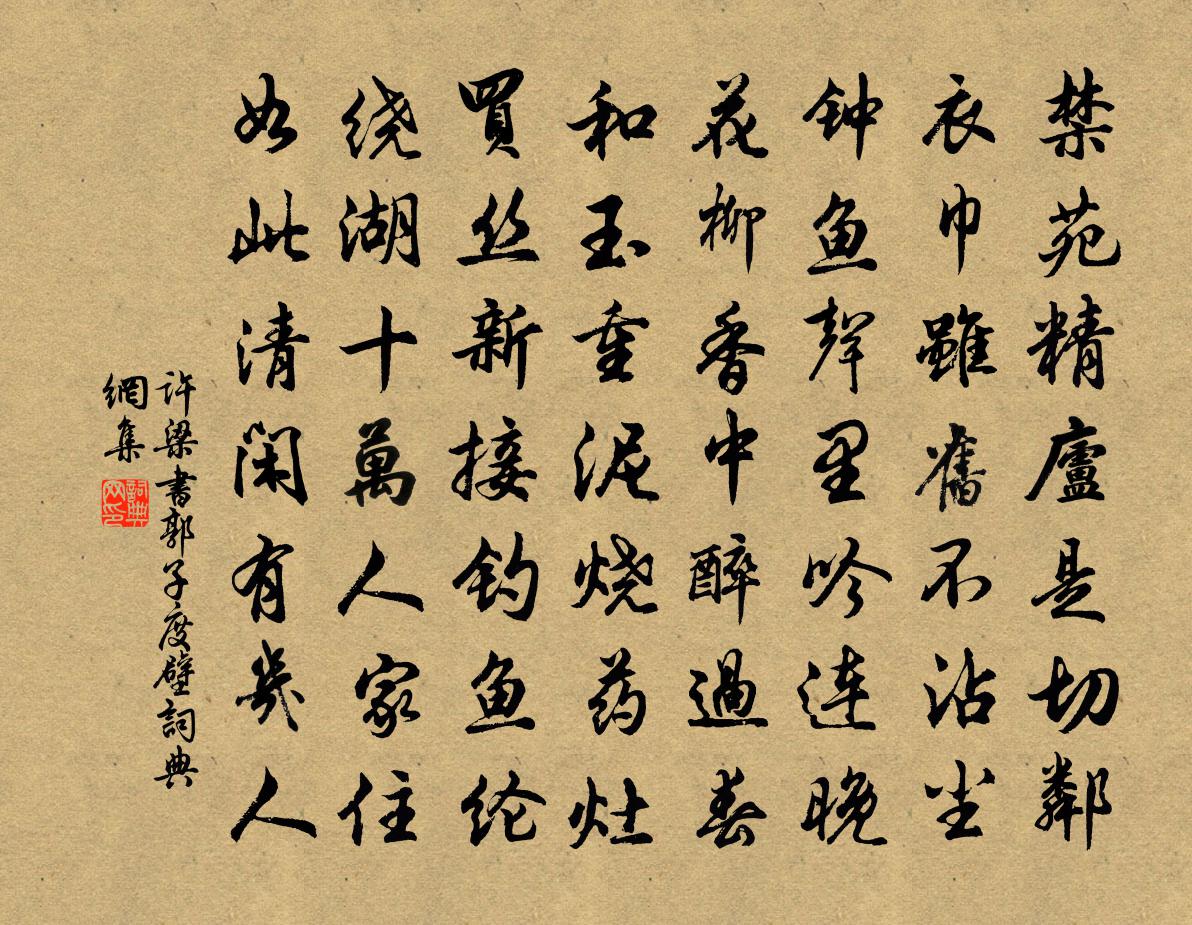 禁苑精廬是切鄰
衣巾雖舊不沾尘
钟鱼聲里吟连晚
花柳香中醉過春
和玉重泥烧药灶
買丝新接钓鱼纶
绕湖十萬人家住
如此清闲有幾人
许梁書郭子度壁詞典
網集
詞典
网印